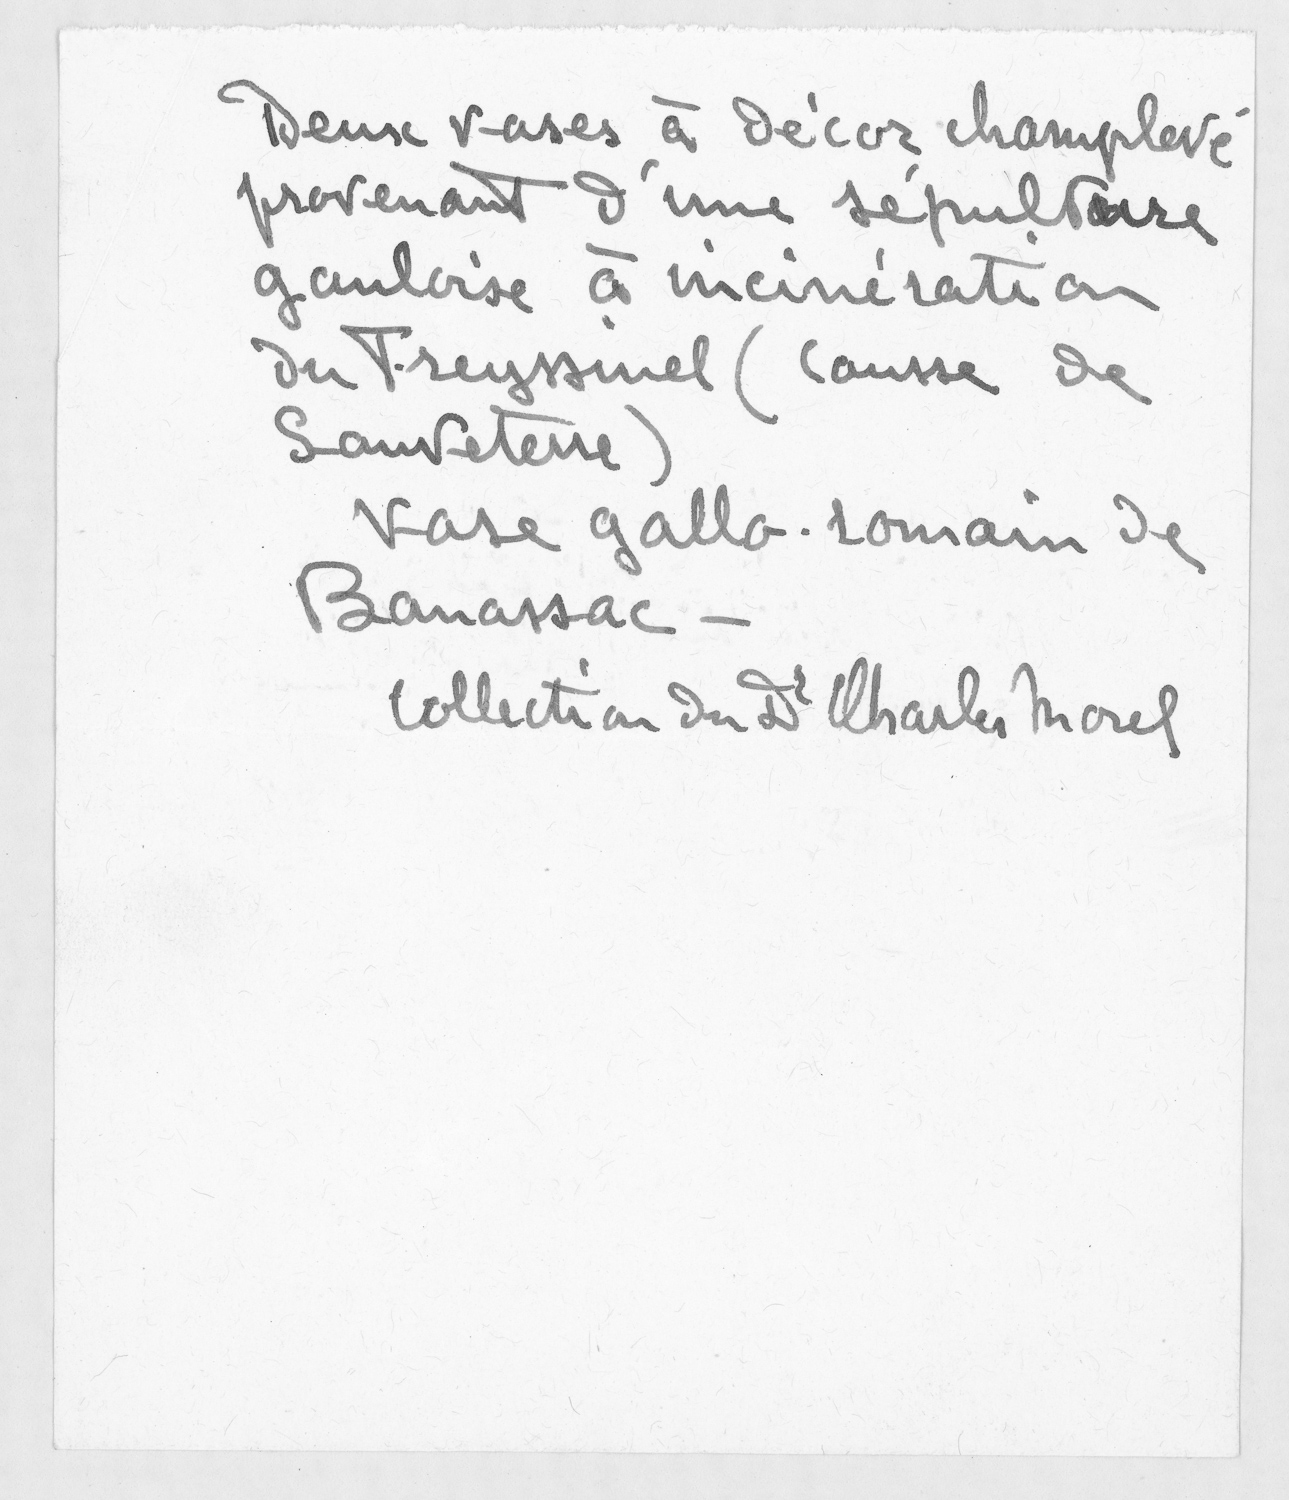 Deux vases à décor champlevé
provenant d'une sépulture
gauloise à incinération
du Freyssinel (Causse de
Sauveterre)
Vase gallo-romain de
Banassac —
Collection du Dr Charles Morel